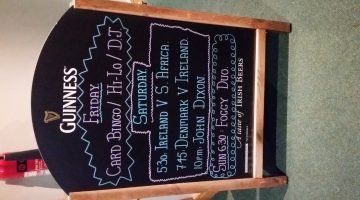 GUINNESS
FRIDAY
CARD BINGO / HI-LO / DJ
SATURDAY
530 IRELAND V S. AFRICA
7.45 DENMARK V IRELAND
10PM: JOHN DIXON.
SUN 6.30: FOGGY DUO.
IRISH BEERS